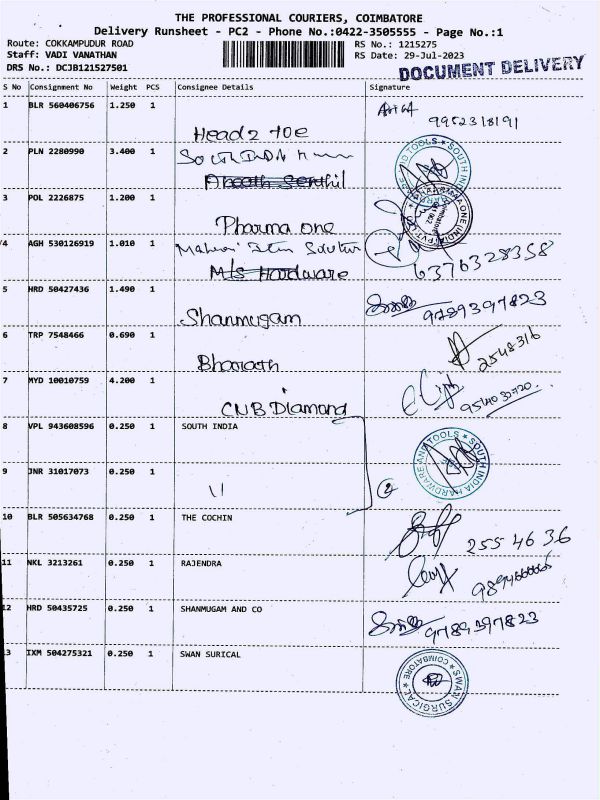 THE PROFESSIONAL COURIERS, COIMBATORE
Delivery Runsheet - PC2 - Phone No.:0422-3505555 - Page No.:1
Route: COKKAMPUDUR ROAD RS No.: 1215275
Staff: VADI VANATHAN RS Date: 29-Jul-2023
DRS No.: DCJB121527501 DOCUMENT DELIVERY
S No Consignment No Weight PCS Consignee Details Signature
1 BLR 560406756 1.250 1 Head 2 toe 9952318191
2 PLN 2280990 3.400 1 SOUTH INDIA
3 POL 2226875 1.200 1 Pharma one
4 AGH 530126919 1.010 1 M/s Hardware 6376328358
5 HRD 50427436 1.490 1 Shanmugam 9789397823
6 TRP 7548466 0.690 1 Bharath 2548316
7 MYD 10010759 4.200 1 CNB Diamond
8 VPL 943608596 0.250 1 SOUTH INDIA SOUTH INDIA HARDWARE AND TOOLS
9 JNR 31017073 0.250 1 11 2
10 BLR 505634768 0.250 1 THE COCHIN 255 46 36
11 NKL 3213261 0.250 1 RAJENDRA
12 HRD 50435725 0.250 1 SHANMUGAM AND CO 9789397823
13 IXM 504275321 0.250 1 SWAN SURICAL SWAN SURGICAL COIMBATORE